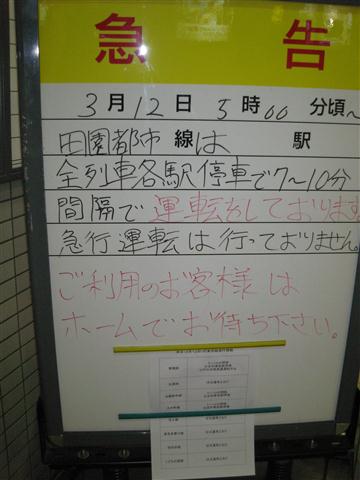 急告
3月12日 5時00分頃~
田園都市線は 駅
全列車各駅停車で7~10分
間隔で運転をしております
急行運転は行っておりません。
ご利用のお客様は
ホームでお待ち下さい。